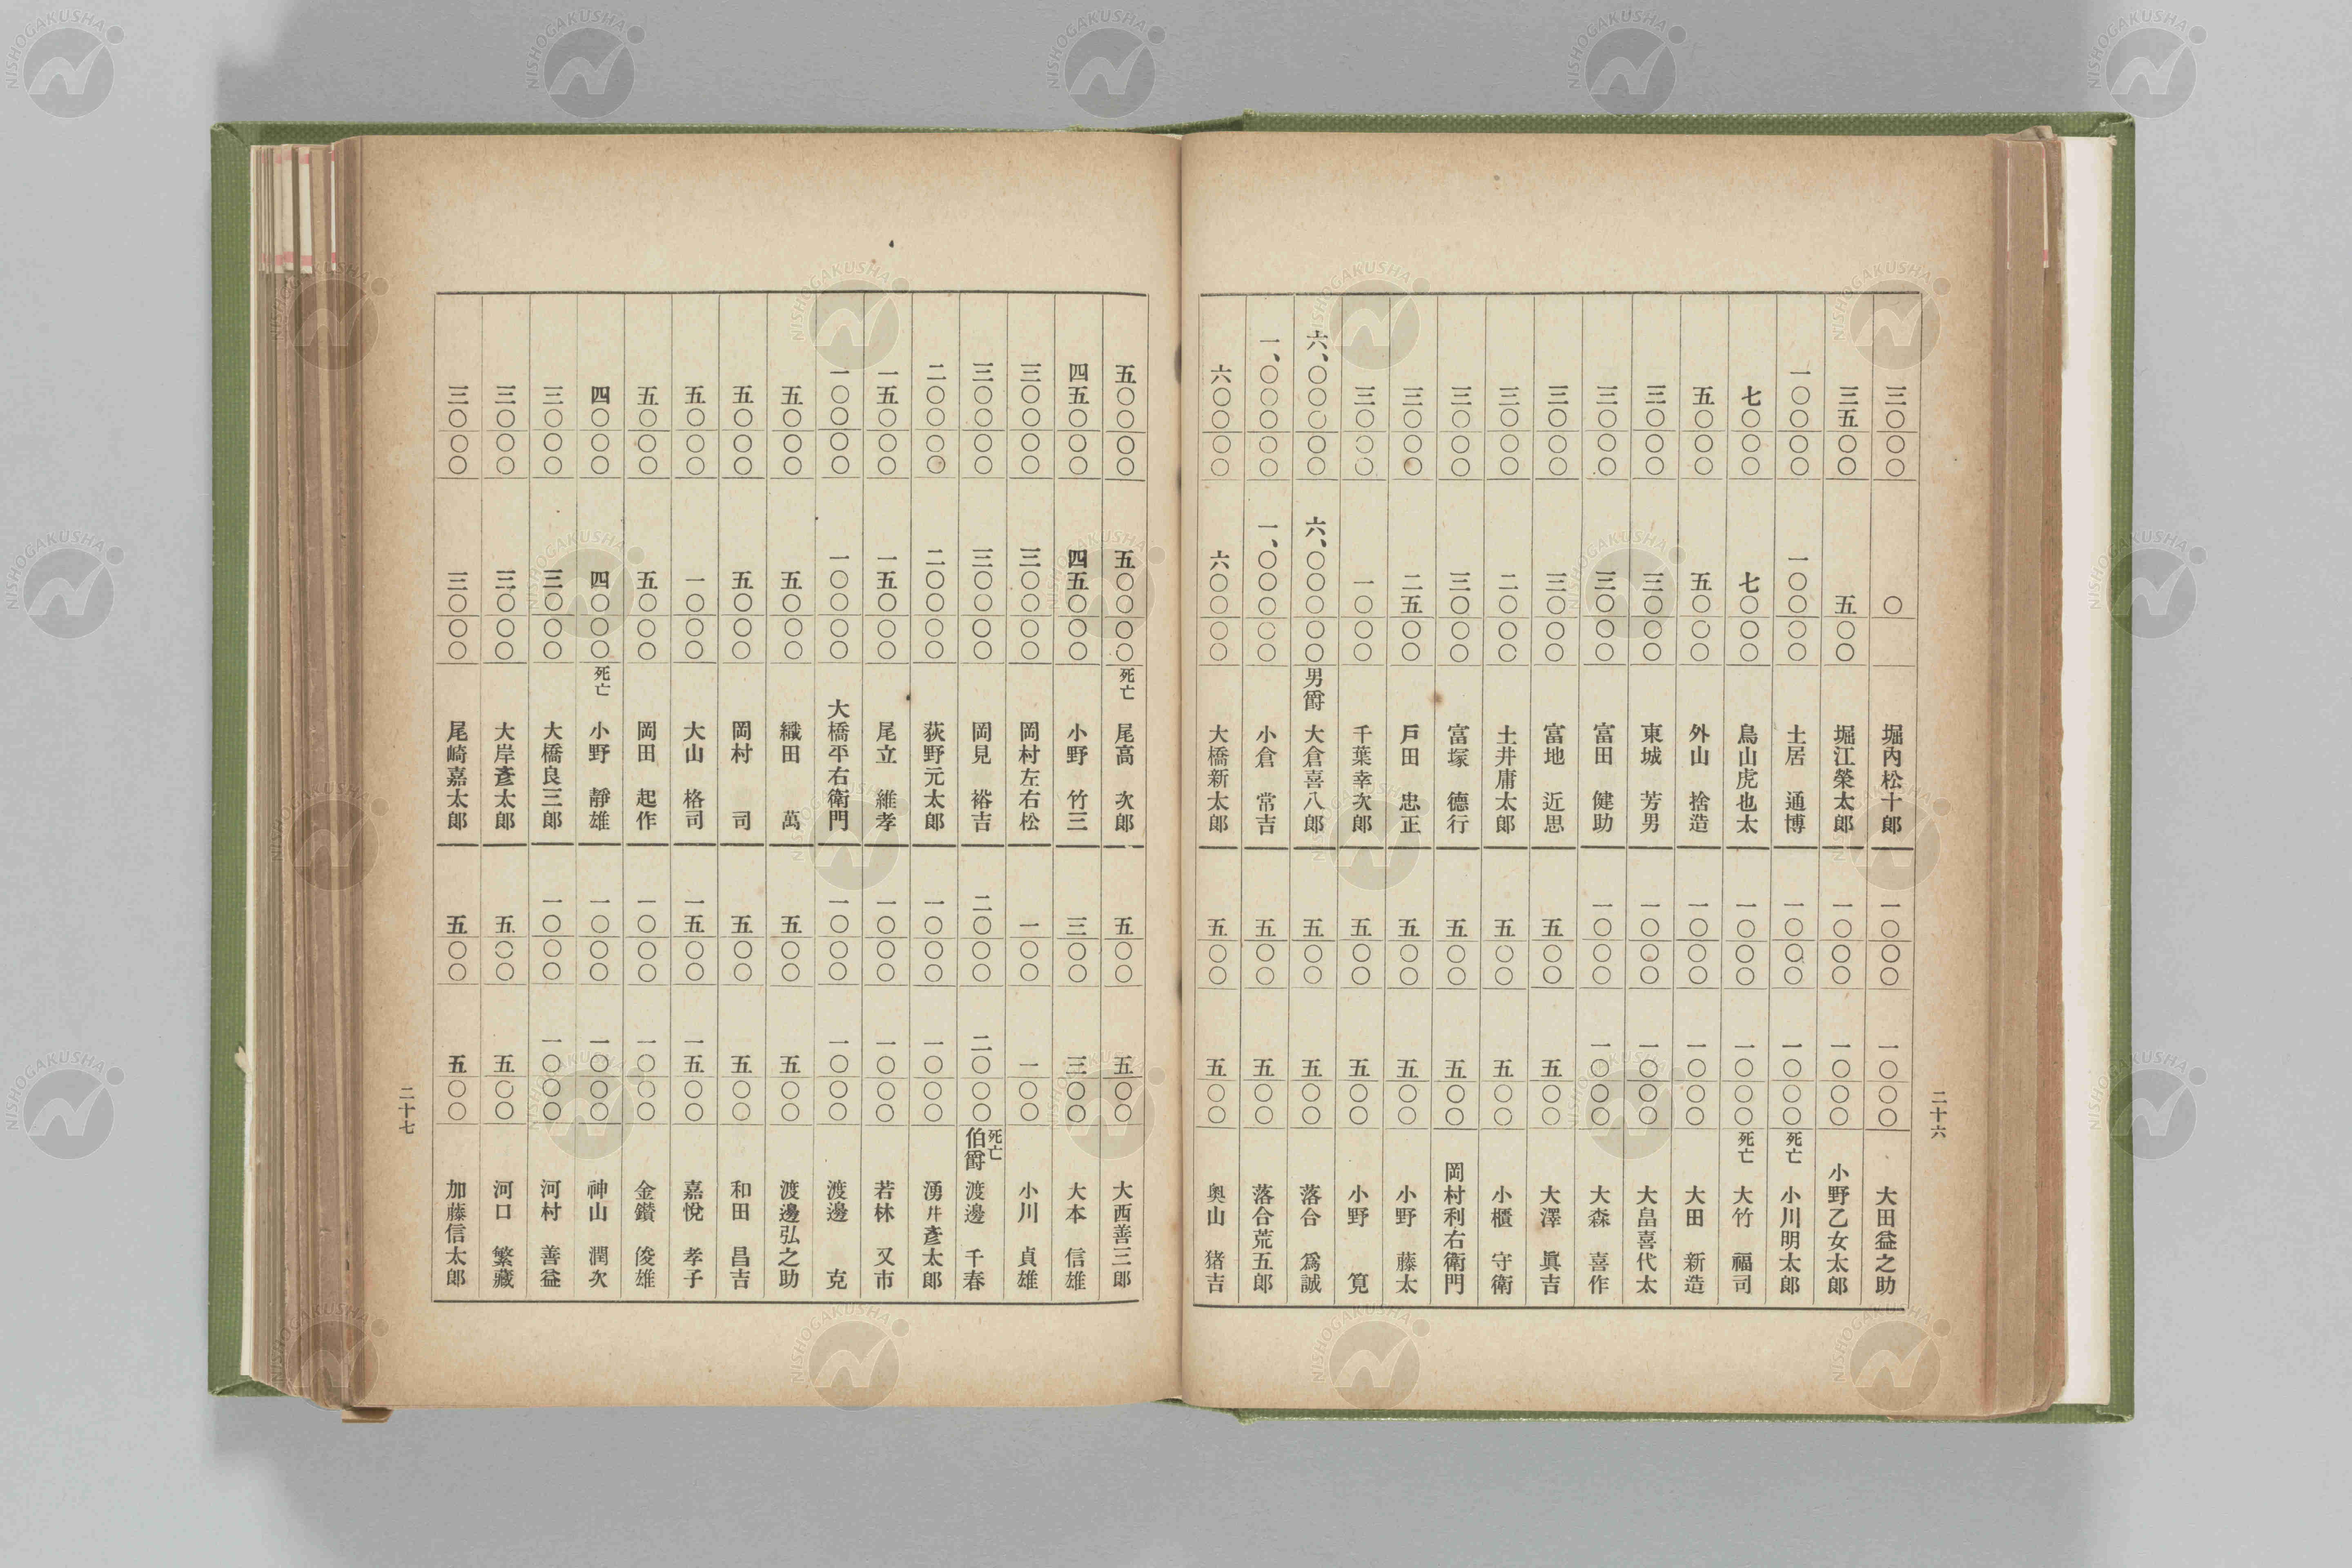 三〇〇〇 〇 堀內松十郎
三五〇〇 五〇〇 堀江榮太郎
一〇〇〇〇 一〇〇〇〇 土居 通博
七〇〇〇 七〇〇〇 鳥山虎也太
五〇〇〇 五〇〇〇 外山 捨造
三〇〇〇 三〇〇〇 東城 芳男
三〇〇〇 三〇〇〇 富田 健助
三〇〇〇 三〇〇〇 富地 近思
三〇〇〇 二〇〇〇 土井庸太郎
三〇〇〇 三〇〇〇 富塚 德行
三〇〇〇 二五〇〇 戸田 忠正
三〇〇〇 一〇〇〇 千葉幸次郎
六、〇〇〇〇〇 六、〇〇〇〇〇 男爵 大倉喜八郎
一、〇〇〇〇〇 一、〇〇〇〇〇 小倉 常吉
六〇〇〇〇 六〇〇〇〇 大橋新太郎
一〇〇〇 一〇〇〇 大田益之助
一〇〇〇 一〇〇〇 小野乙女太郎
一〇〇〇 一〇〇〇 死亡 小川明太郎
一〇〇〇 一〇〇〇 死亡 大竹 福司
一〇〇〇 一〇〇〇 大田 新造
一〇〇〇 一〇〇〇 大畠喜代太
一〇〇〇 一〇〇〇 大森 喜作
五〇〇 五〇〇 大澤 眞吉
五〇〇 五〇〇 小櫃 守衛
五〇〇 五〇〇 岡村利右衛門
五〇〇 五〇〇 小野 藤太
五〇〇 五〇〇 小野 筧
五〇〇 五〇〇 落合 爲誠
五〇〇 五〇〇 落合荒五郎
五〇〇 五〇〇 奥山 猪吉
二十六
五〇〇〇〇 五〇〇〇〇 死亡 尾高 次郎
四五〇〇〇 四五〇〇〇 小野 竹三
三〇〇〇〇 三〇〇〇〇 岡村左右松
三〇〇〇〇 三〇〇〇〇 岡見 裕吉
二〇〇〇〇 二〇〇〇〇 荻野元太郎
一五〇〇〇 一五〇〇〇 尾立 維孝
一〇〇〇〇 一〇〇〇〇 大橋平右衛門
五〇〇〇 五〇〇〇 織田 萬
五〇〇〇 五〇〇〇 岡村 司
五〇〇〇 一〇〇〇 大山 格司
五〇〇〇 五〇〇〇 岡田 起作
四〇〇〇 四〇〇〇 死亡 小野 靜雄
三〇〇〇 三〇〇〇 大橋良三郎
三〇〇〇 三〇〇〇 大岸彥太郎
三〇〇〇 三〇〇〇 尾崎嘉太郎
五〇〇 五〇〇 大西善三郎
三〇〇 三〇〇 大本 信雄
一〇〇 一〇〇 小川 貞雄
二〇〇〇 二〇〇〇 死亡 伯爵 渡邊 千春
一〇〇〇 一〇〇〇 湧井彥太郎
一〇〇〇 一〇〇〇 若林 又市
一〇〇〇 一〇〇〇 渡邊 克
五〇〇 五〇〇 渡邊弘之助
五〇〇 五〇〇 和田 昌吉
一五〇〇 一五〇〇 嘉悅 孝子
一〇〇〇 一〇〇〇 金鑚 俊雄
一〇〇〇 一〇〇〇 神山 潤次
一〇〇〇 一〇〇〇 河村 善益
五〇〇 五〇〇 河口 繁藏
五〇〇 五〇〇 加藤信太郎
二十七